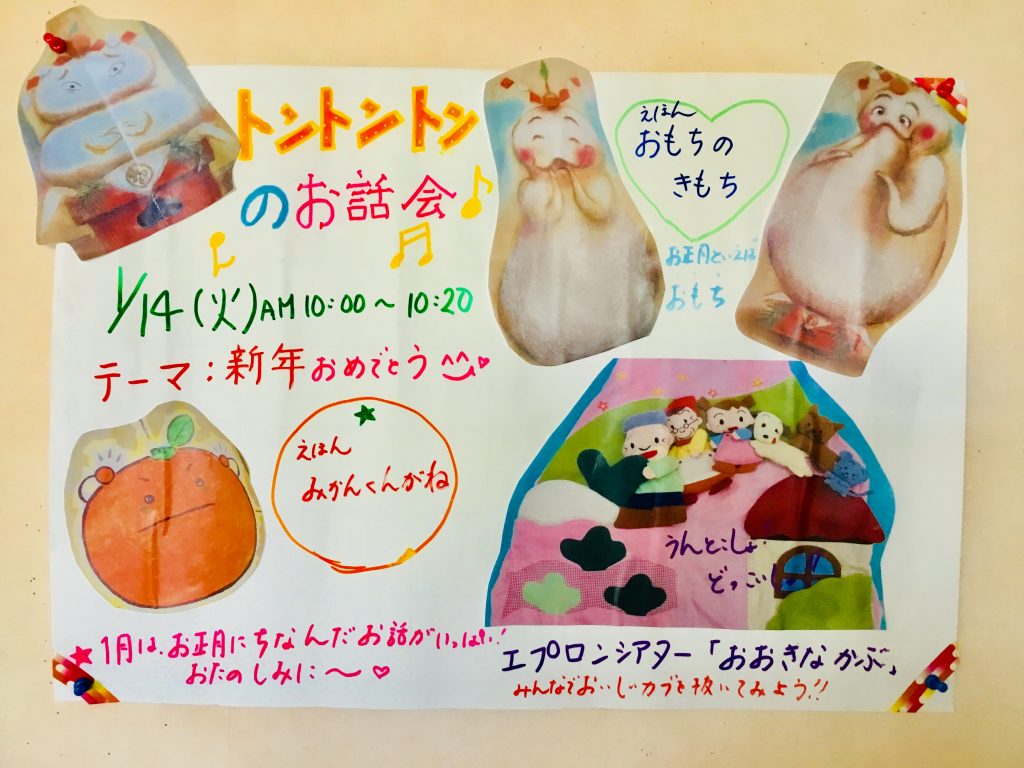 トントントン
のお話会
1/14(火)AM10:00~10:20
テーマ:新年おめでとう^^
えほん
みかんくんがね
えほん
おもちの
きもち
お正月といえば
おもち
うんとこしょ
どっこいしょ
★1月は、お正月にちなんだお話がいっぱい!
おたのしみに〜♡
エプロンシアター「おおきなかぶ」
みんなでおいしいカブを抜いてみよう!!